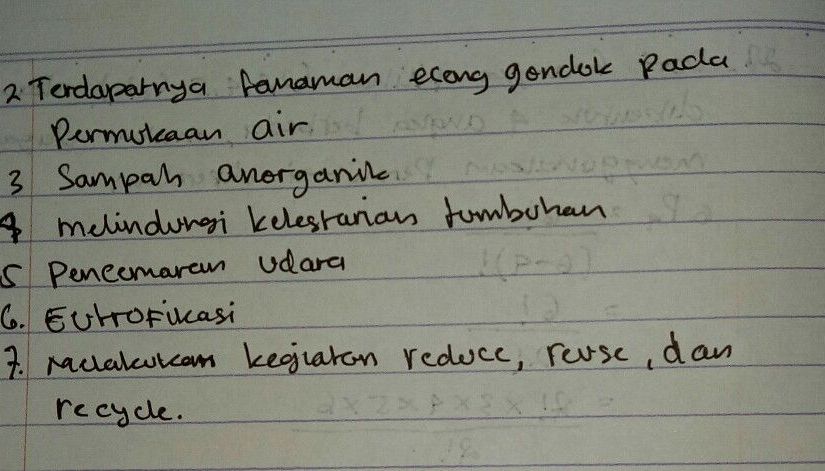 2 Terdapatnya tanaman eceng gondok pada
Permukaan air
3 Sampah anorganik
4 melindungi kelestarian tumbuhan
5 Pencemaran udara
6. Eutrofikasi
7. Melakukan kegiatan reduce, reuse, dan
recycle.